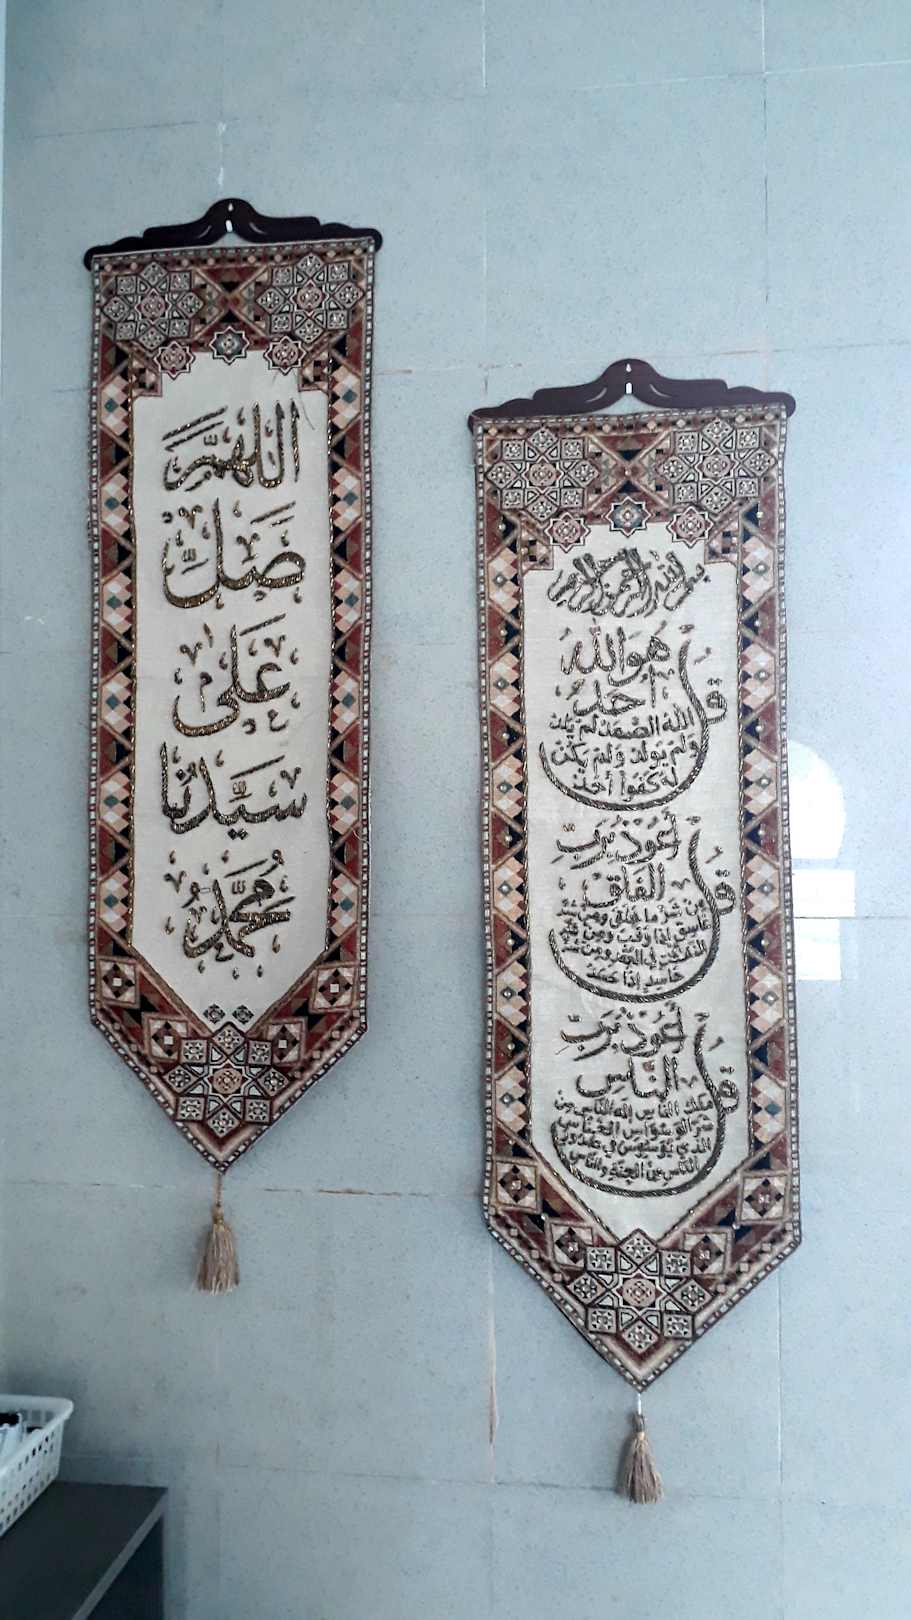 اللهم
صل
على
سيدنا
محمد
بسم الله الرحمن الرحيم
قل هو الله
أحد
الله الصمد لم يلد
ولم يولد ولم يكن
له كفوا أحد
قل أعوذ برب
الفلق
من شر ما خلق ومن شر
غاسق إذا وقب ومن شر
النفاثات في العقد ومن شر
حاسد إذا حسد
قل أعوذ برب
الناس
ملك الناس إله الناس من
شر الوسواس الخناس
الذي يوسوس في صدور
الناس من الجنة والناس